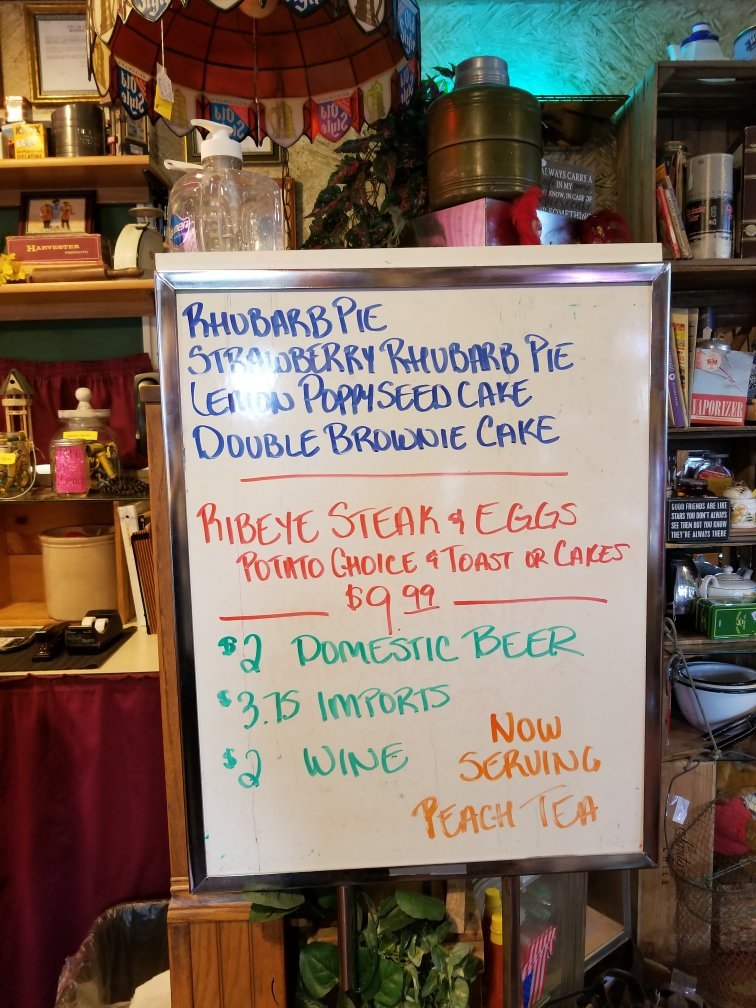 Old Style
Old Style
Old Style
KNOX
GELATINE
HARVESTER
PERFECTO
ALWAYS CARRY A
IN MY
KNOW, IN CASE OF
SOMETHING
VAPORIZER
GOOD FRIENDS ARE LIKE
STARS YOU DON'T ALWAYS
SEE THEM BUT YOU KNOW
THEY'RE ALWAYS THERE
RHUBARB PIE
STRAWBERRY RHUBARB PIE
LEMON POPPYSEED CAKE
DOUBLE BROWNIE CAKE
RIBEYE STEAK & EGGS
POTATO CHOICE & TOAST OR CAKES
$9.99
$2 DOMESTIC BEER
$3.75 IMPORTS
$2 WINE
NOW
SERVING
PEACH TEA